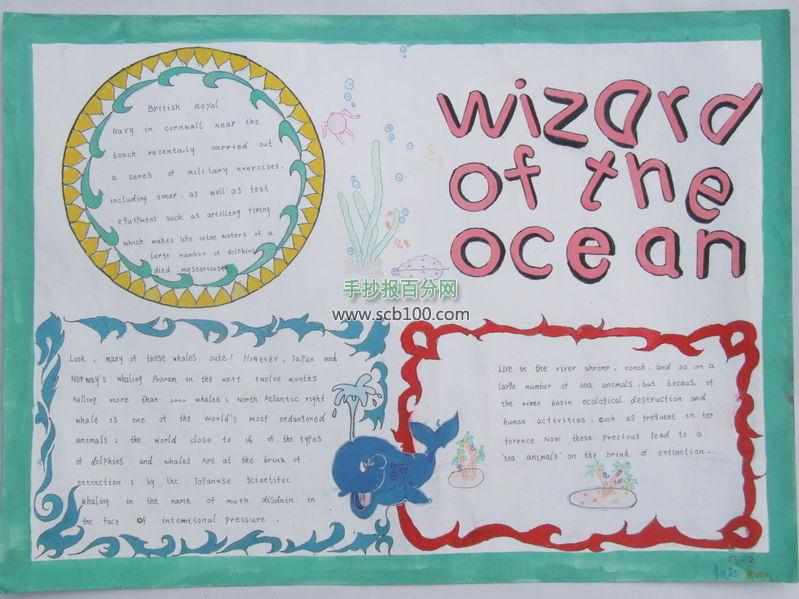 wizard
of the
ocean
British Royal
Navy in cornwall near the
beach recentaily carried out
a seres of military exercises,
including sonar, as well as test
equipment such as artillery firing
which makes life inthe waters of a
large number of dolphins
died mysterious
手抄报百分网
www.scb100.com
Look, many of these whales cute! However, Japan and
Norway's whaling Proram in the next twelve months
killing more than 2000 whales; North Atlantic right
whale is one of the world's most endangered
animals; the world close to of the types
of dolphins and whales Are at the brink of
extinction; by the Jopanase Scientific
whaling in the name of muth disdain in
the face of interotional pressure.
鲸
Live in the river shrimp, conch, and so on a
large number of sea animals, but becaus of
the river basin ecological destruction and
human activities, such as frequent in ter
ference Now these precious lead to a
"sea animals" on the brink of extinction.